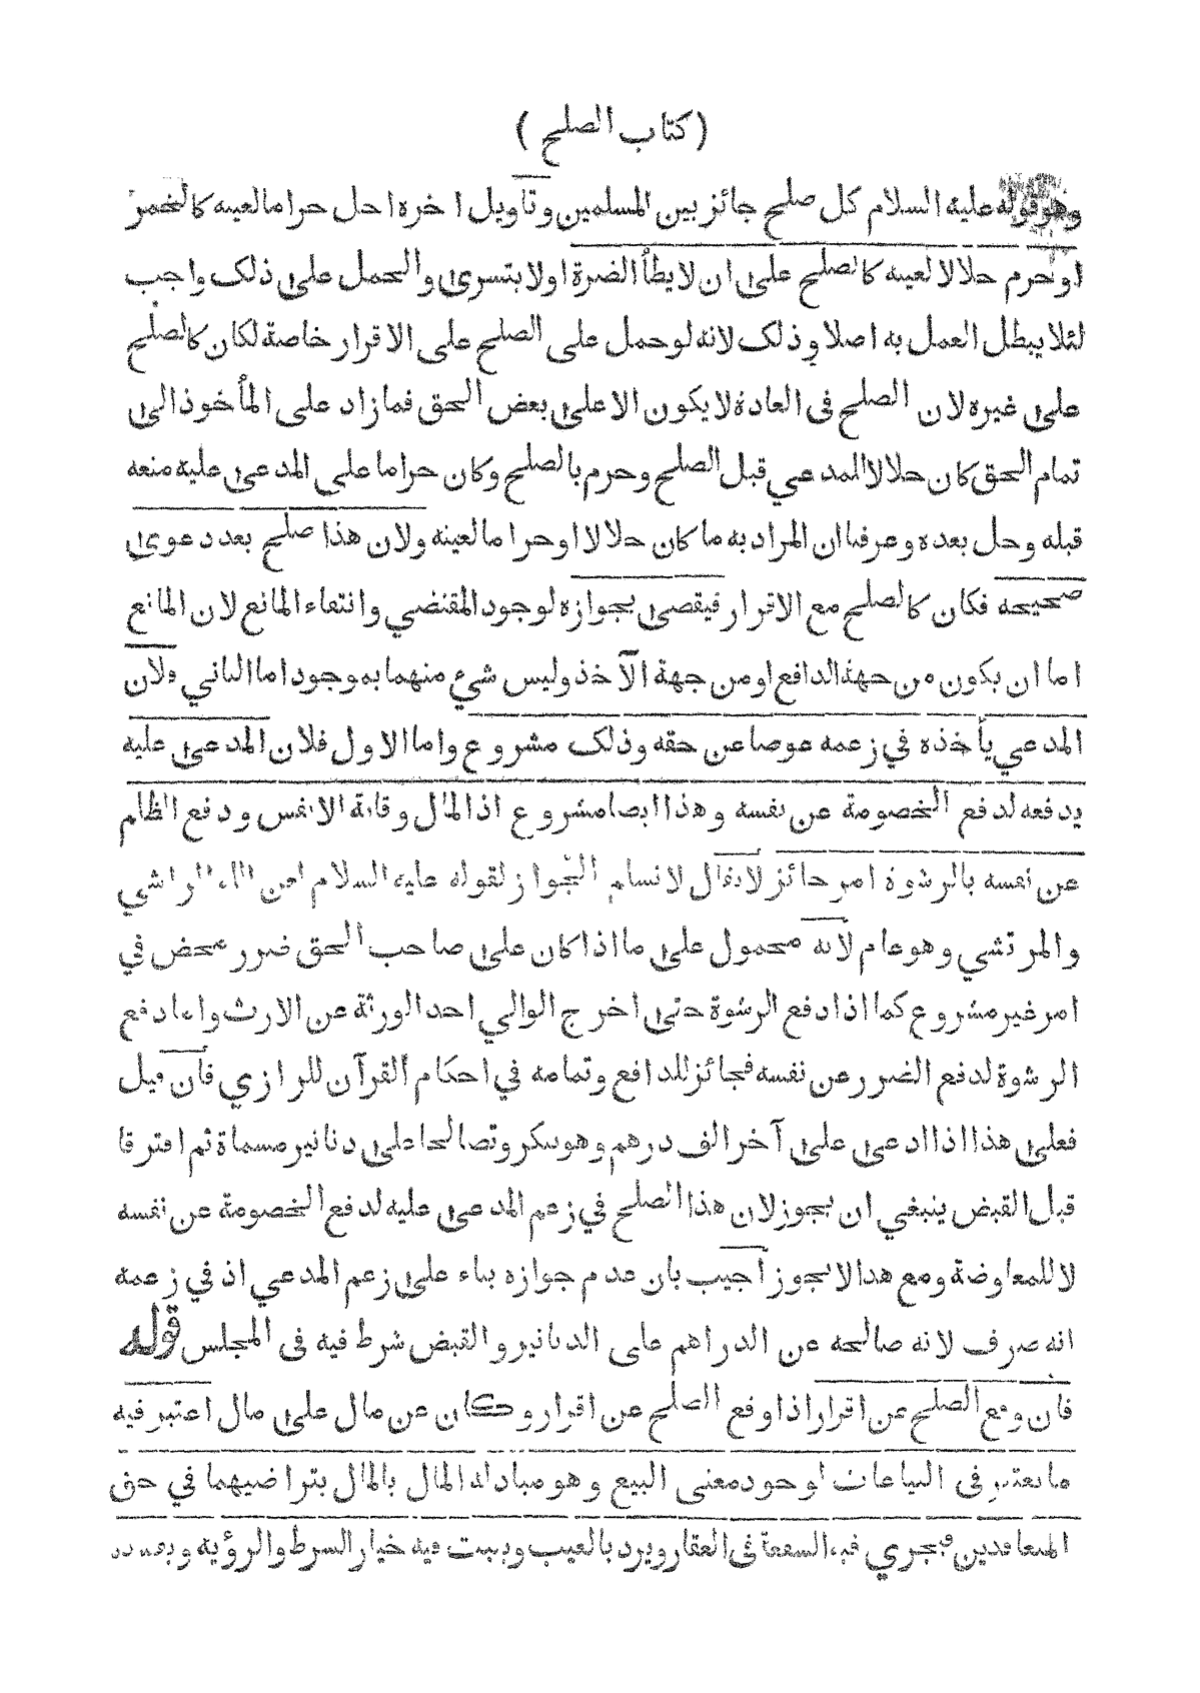 ( كتاب الصلح )
وهو قوله عليه السلام كل صلح جائز بين المسلمين وتأويل اخره احل حراما لعينه كالخمر
او حرم حلالا لعينه كالصلح على ان لا يطأ الضرة او لا يتسرى والحمل على ذلك واجب
لئلا يبطل العمل به اصلا وذلك لانه لو حمل على الصلح على الاقرار خاصة لكان كالصلح
على غيره لان الصلح فى العادة لا يكون الا على بعض الحق فما زاد على المأخوذ الى
تمام الحق كان حلالا للمدعي قبل الصلح وحرم بالصلح وكان حراما على المدعى عليه منعه
قبله وحل بعده وعرفنا ان المراد به ما كان حلالا او حراما لعينه ولان هذا صلح بعد دعوى
صحيحه فكان كالصلح مع الاقرار فيقضى بجوازه لوجود المقتضي وانتفاء المانع لان المانع
اما ان يكون من جهة الدافع او من جهة الآخذ وليس شيء منهما بموجود اما الثاني ولأن
المدعي يأخذه في زعمه عوضا عن حقه وذلك مشروع واما الاول فلان المدعى عليه
يدفعه لدفع الخصومة عن نفسه وهذا ايضا مشروع اذ المال وقاية الانفس ودفع الظلم
عن نفسه بالرشوة امر جائز لا يقال لا نسلم الجواز لقوله عليه السلام لعن الله الراشي
والمرتشي وهو عام لانه محمول على ما اذا كان على صاحب الحق ضرر محض في
امر غير مشروع كما اذا دفع الرشوة حتى اخرج الوالي احد الورثة عن الارث واما دفع
الرشوة لدفع الضرر عن نفسه فجائز للدافع وتمامه في احكام القرآن للرازي فأن قيل
فعلى هذا اذا ادعى على آخر الف درهم وهو ينكر وتصالحا على دنانير مسماة ثم افترقا
قبل القبض ينبغي ان يجوز لان هذا الصلح في زعم المدعى عليه لدفع الخصومة عن نفسه
لا للمعاوضة ومع هذا لا يجوز أجيب بان عدم جوازه بناء على زعم المدعي اذ في زعمه
انه صرف لانه صالحه عن الدراهم على الدنانير والقبض شرط فيه فى المجلس قوله
فأن وقع الصلح عن اقرار اذا وقع الصلح عن اقرار وكان عن مال على مال اعتبر فيه
ما يعتبر فى البياعات لوجود معنى البيع وهو مبادلة المال بالمال بتراضيهما في حق
المتعاقدين فيجري فيه الشفعة فى العقار ويرد بالعيب ويثبت فيه خيار الشرط والرؤيه